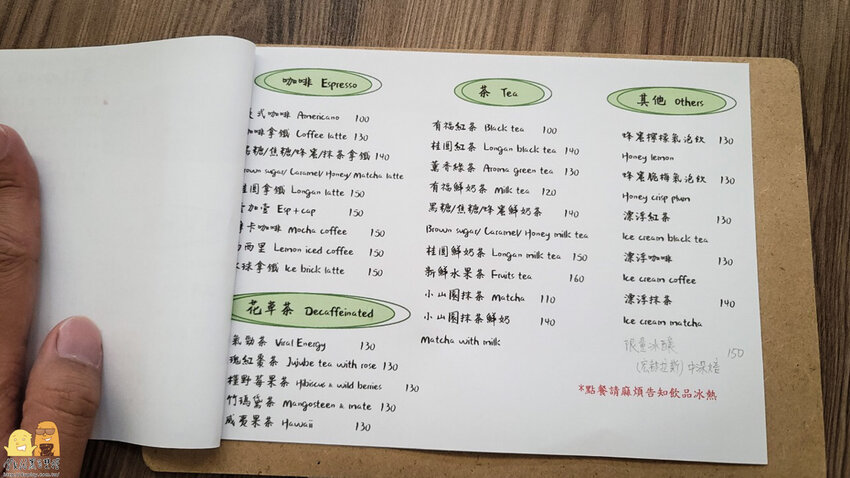 咖啡 Espresso
式咖啡 Americano 100
啡拿鐵 Coffee latte 130
糖/焦糖/蜂蜜/抹茶拿鐵 140
Brown sugar/ Caramel/ Honey/ Matcha latte
桂圓拿鐵 Longan latte 150
加壹 Esp + cap 150
卡咖啡 Mocha coffee 150
西里 Lemon iced coffee 150
球拿鐵 Ice brick latte 150
花草茶 Decaffeinated
氣勁茶 Viral Energy 130
瑰紅棗茶 Jujube tea with rose 130
槿野莓果茶 Hibiscus & wild berries 130
竹瑪黛茶 Mangosteen & mate 130
威夷果茶 Hawaii 130
茶 Tea
有福紅茶 Black tea 100
桂圓紅茶 Longan black tea 140
薰香綠茶 Aroma green tea 130
有福鮮奶茶 Milk tea 120
黑糖/焦糖/蜂蜜鮮奶茶 140
Brown sugar/ Caramel/ Honey milk tea
桂圓鮮奶茶 Longan milk tea 150
新鮮水果茶 Fruits tea 160
小山園抹茶 Matcha 110
小山園抹茶鮮奶 140
Matcha with milk
其他 Others
蜂蜜檸檬氣泡飲 130
Honey lemon
蜂蜜脆梅氣泡飲 130
Honey crisp plum
漂浮紅茶 130
Ice cream black tea
漂浮咖啡 130
Ice cream coffee
漂浮抹茶 140
Ice cream matcha
限量冰釀 150
中深焙
*點餐請麻煩告知飲品冰熱